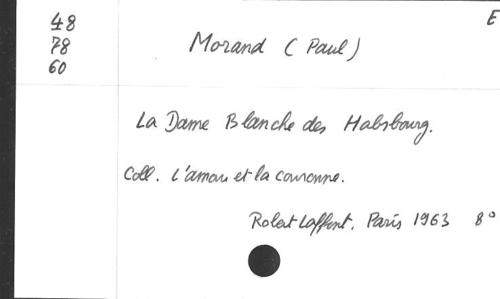 E
48
78
60
Morand (Paul)
La Dame Blanche des Habsbourg.
Coll. L'amour et la couronne.
Robert Laffont. Paris 1963 8°